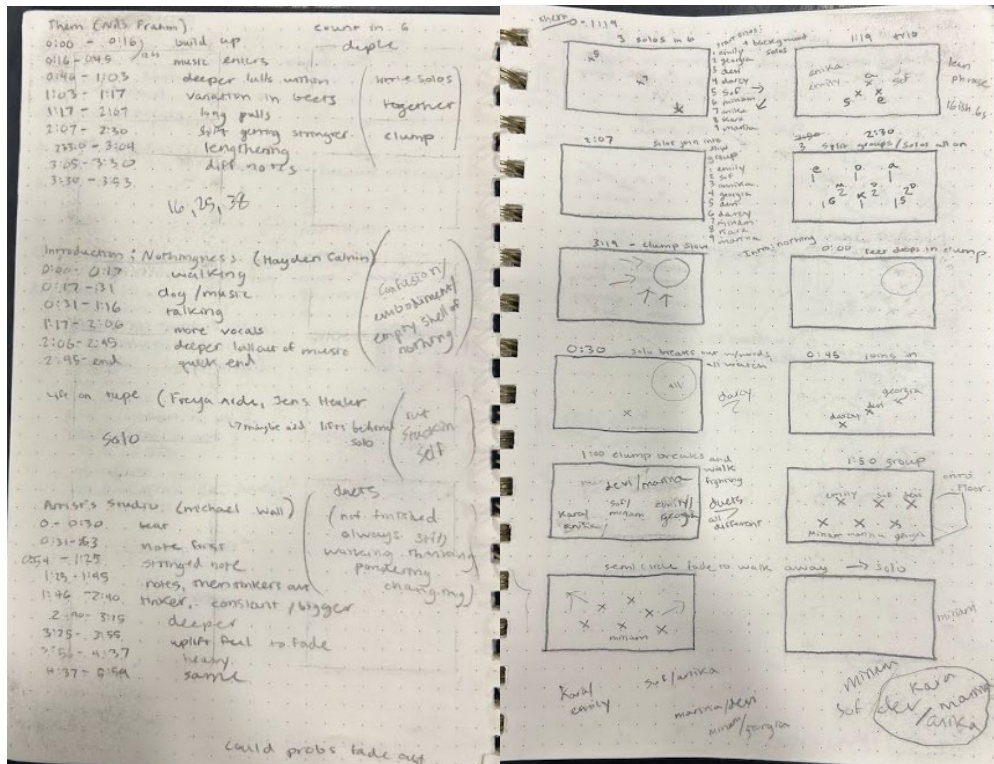 Them (Nils Frahm) count in 6
0:00 - 0:16 build up duple
0:16 - 0:45 music enters
0:46 - 1:03 deeper lulls within (little solos
1:03 - 1:17 variation in beets together
1:17 - 2:07 long pulls clump)
2:07 - 2:30 split getting stronger
2:30 - 3:04 lengthening
3:05 - 3:30 diff notes
3:30 - 3:53
16, 25, 38
Introduction: Nothingness. (Hayden Calnin)
0:00 - 0:17 walking
0:17 - :31 dog/music
0:31 - 1:16 talking
1:17 - 2:06 more vocals
2:06 - 2:45 deeper fallout of music
2:45 - end quick end
(confusion/
embodiment/
empty shell of
nothing)
on tape (Freya Arde, Jens Heuler
solo
↳ maybe add lifts behind
solo
stuck in
self
Artist's Studio. (Michael Wall) duets
0 - 0:30. beat
0:31 - note first
0:54 - 1:25 stringed note
1:25 - 1:45 notes, then tinkers out
1:46 - 2:40. tinker, constant/bigger
2:40 - 3:15 deeper
3:25 - 3:55 uplift feel to fade
3:56 - 4:37 heavy
4:37 - 5:59 same
(not finished
always still
walking thinking
pondering
changing)
could probs fade out
Them 0 - 1:19
3 solos in 6
+ background
solos
1 emily
2 georgia
3 devi
4 darcy
5 sof →
6 miriam
7 anika
8 kara
9 marina
1:19 trio
anika
emily sof
a
s e
learn
phrase
16ish 6s
2:07 solos join into
group
1 emily
2 sof
3 anika
4 georgia
5 devi
6 darcy
7 miriam
8 kara
9 marina
2:30
3 split groups/solos all on
3:19 - clump slow
Intro: nothing 0:00 tear drops in clump
0:30 solo breaks out w/words
all watch
all
darcy
0:45 joins in
georgia
devi
darcy
1:00 clump breaks and
walk
fighting
devi/marina
kara/ sof/ emily/
anika miriam georgia
duets
all
different
1:50 group
emily sof devi
miriam marina georgia
onto
floor
semi circle fade to walk away → solo
miriam
miriam
kara/
emily
sof/anika
marina/devi
miriam/georgia
miriam
sof/devi
kara
marina
/anika